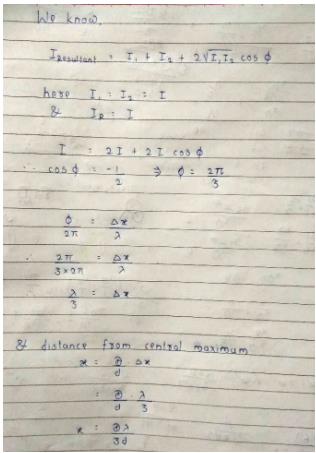 We know,
I_Resultant = I₁ + I₂ + 2√I₁I₂ cos φ
here I₁ = I₂ = I
& I_R = I
I = 2I + 2I cos φ
∴ cos φ = -1/2 ⇒ φ = 2π/3
φ/2π = Δx/λ
∴ 2π/3×2π = Δx/λ
λ/3 = Δx
& distance from central maximum
x = D/d . Δx
= D/d . λ/3
x = Dλ/3d